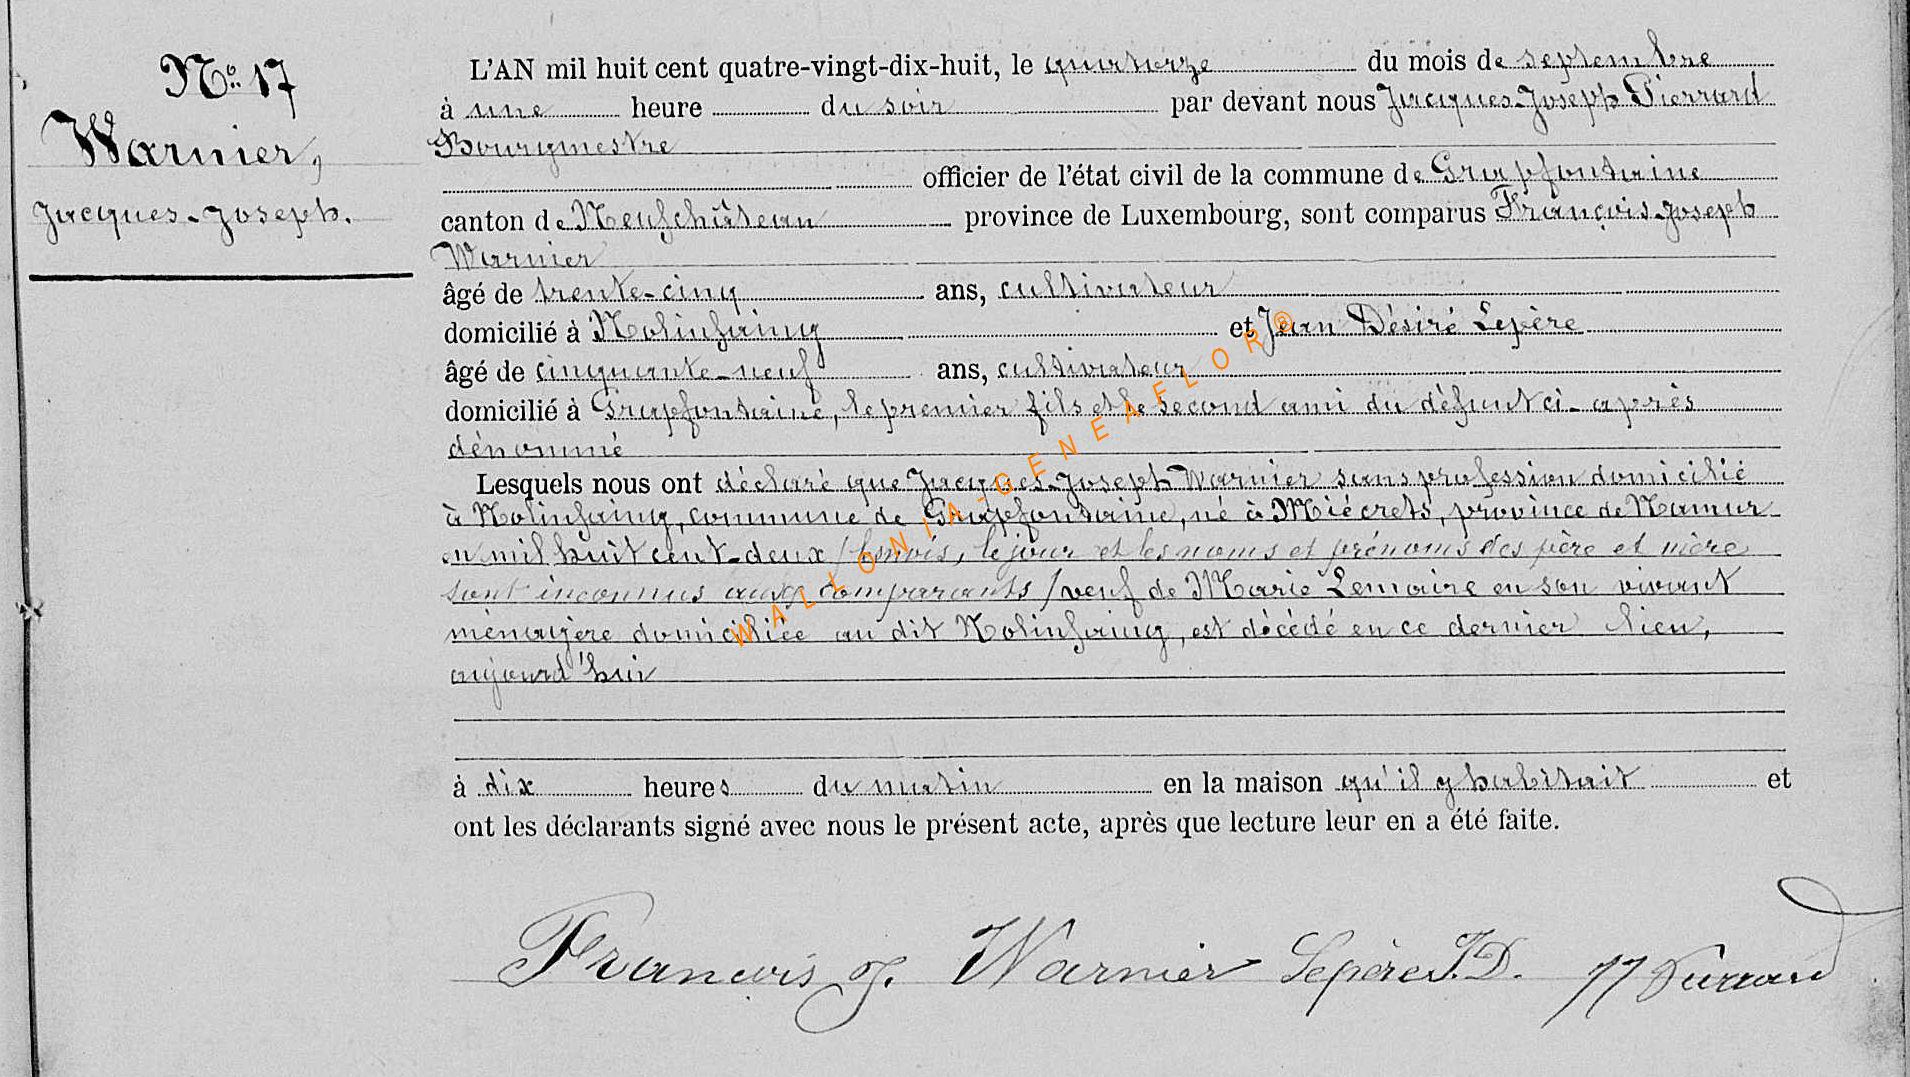 N° 17
Warnier,
Jacques-Joseph.
L'AN mil huit cent quatre-vingt-dix-huit, le quatorze du mois de septembre
à une heure du soir par devant nous Jacques-Joseph Pierrard
Bourgmestre
officier de l'état civil de la commune de Grapfontaine
canton de Neufchâteau province de Luxembourg, sont comparus François-Joseph
Warnier
âgé de trente-cinq ans, cultivateur
domicilié à Nolinfaing et Jean Désiré Lepère
âgé de cinquante-neuf ans, cultivateur
domicilié à Grapfontaine, le premier fils et le second ami du défunt ci-après
dénommé
Lesquels nous ont déclaré que Jacques-Joseph Warnier sans profession domicilié
à Nolinfaing, commune de Grapfontaine, né à Miécrets, province de Namur
en mil huit cent-deux / le mois, le jour et les noms et prénoms des père et mère
sont inconnus aux comparants / veuf de Marie Lemaire en son vivant
ménagère domiciliée au dit Nolinfaing, est décédé en ce dernier lieu,
aujourd'hui
à dix heures du matin en la maison qu'il y habitait et
ont les déclarants signé avec nous le présent acte, après que lecture leur en a été faite.
François J. Warnier Lepère J.D. JJ Pierrard
WALLONIA-GENEAFLOR®